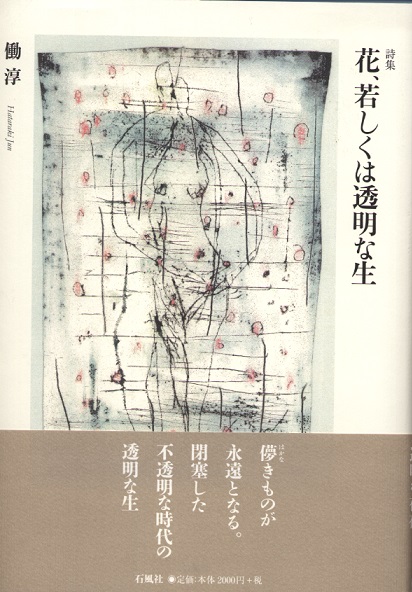 詩集
花、若しくは透明な生
働淳
Hataraki Jun
儚きものが
はかな
永遠となる。
閉塞した
不透明な時代の
透明な生
石風社 ◉定価:本体2000円+税